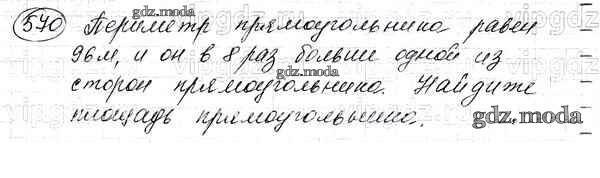 570 Периметр прямоугольника равен
96м, и он в 8 раз больше одной из
сторон прямоугольника. Найдите
площадь прямоугольника.
gdz.moda
gdz.moda
gdz.moda
gdz.moda
gdz.moda